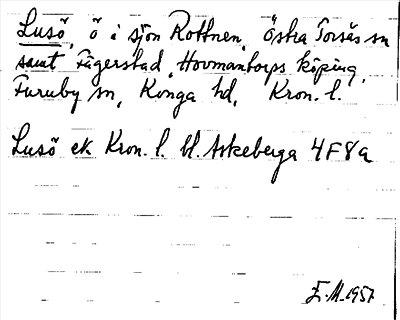 Lusö, ö i sjön Rottnen, Östra Torsås sn
samt Fägerstad, Hovmantorps köping,
Furuby sn, Konga hd, Kron. l.
Lusö ek Kron. l. bl. Askeberga 4F8a
E.M. 1957